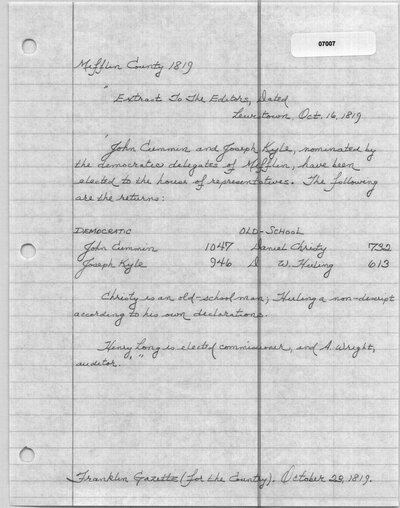 07007
Mifflin County 1819
"Extract To The Editors, Dated
Lewistown, Oct. 16, 1819
"John Cummin and Joseph Kyle, nominated by
the democratic delegates of Mifflin, have been
elected to the house of representatives. The following
are the returns:
DEMOCRATIC OLD-SCHOOL
John Cummin 1047 Daniel Christy 732
Joseph Kyle 946 D W. Huling 613
Christy is an old-school man; Huling a non-descript
according to his own declarations.
Henry Long is elected commissioner, and A. Wright,
auditor."
Franklin Gazette (for the Country). October 29, 1819.